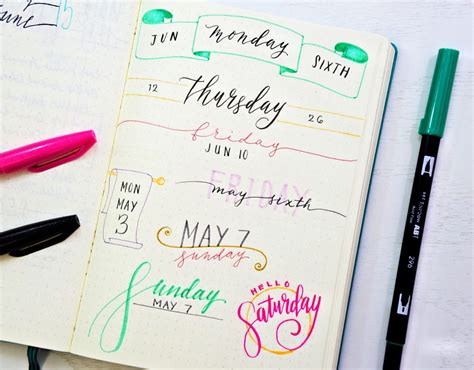 JUN Monday SIXTH
12 Thursday 26
friday
JUN 10
FRIDAY
may sixth
MON
MAY
3
MAY 7
sunday
Sunday
MAY 7
HELLO
Saturday
ABT
296